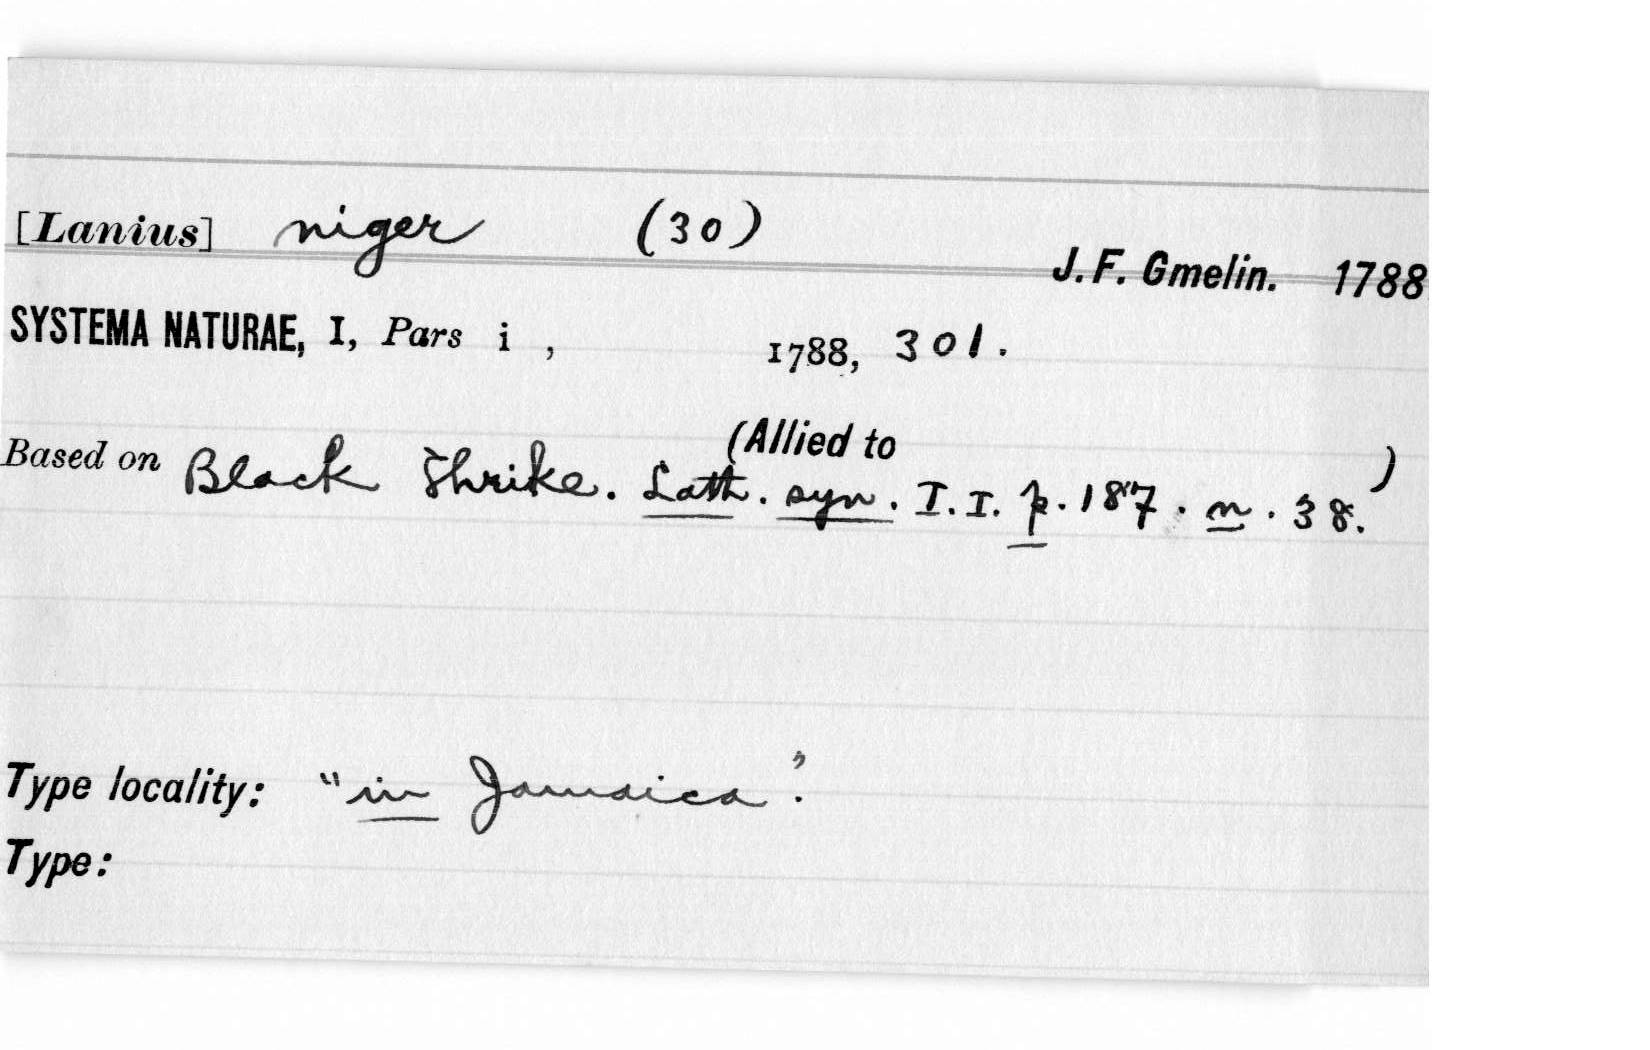 [Lanius] niger (30)
J. F. Gmelin. 1788
SYSTEMA NATURAE, I, Pars i , 1788, 301.
(Allied to )
Based on Black Shrike. Lath. syn. I. I. p. 187. n. 38.
Type locality: "in Jamaica".
Type: